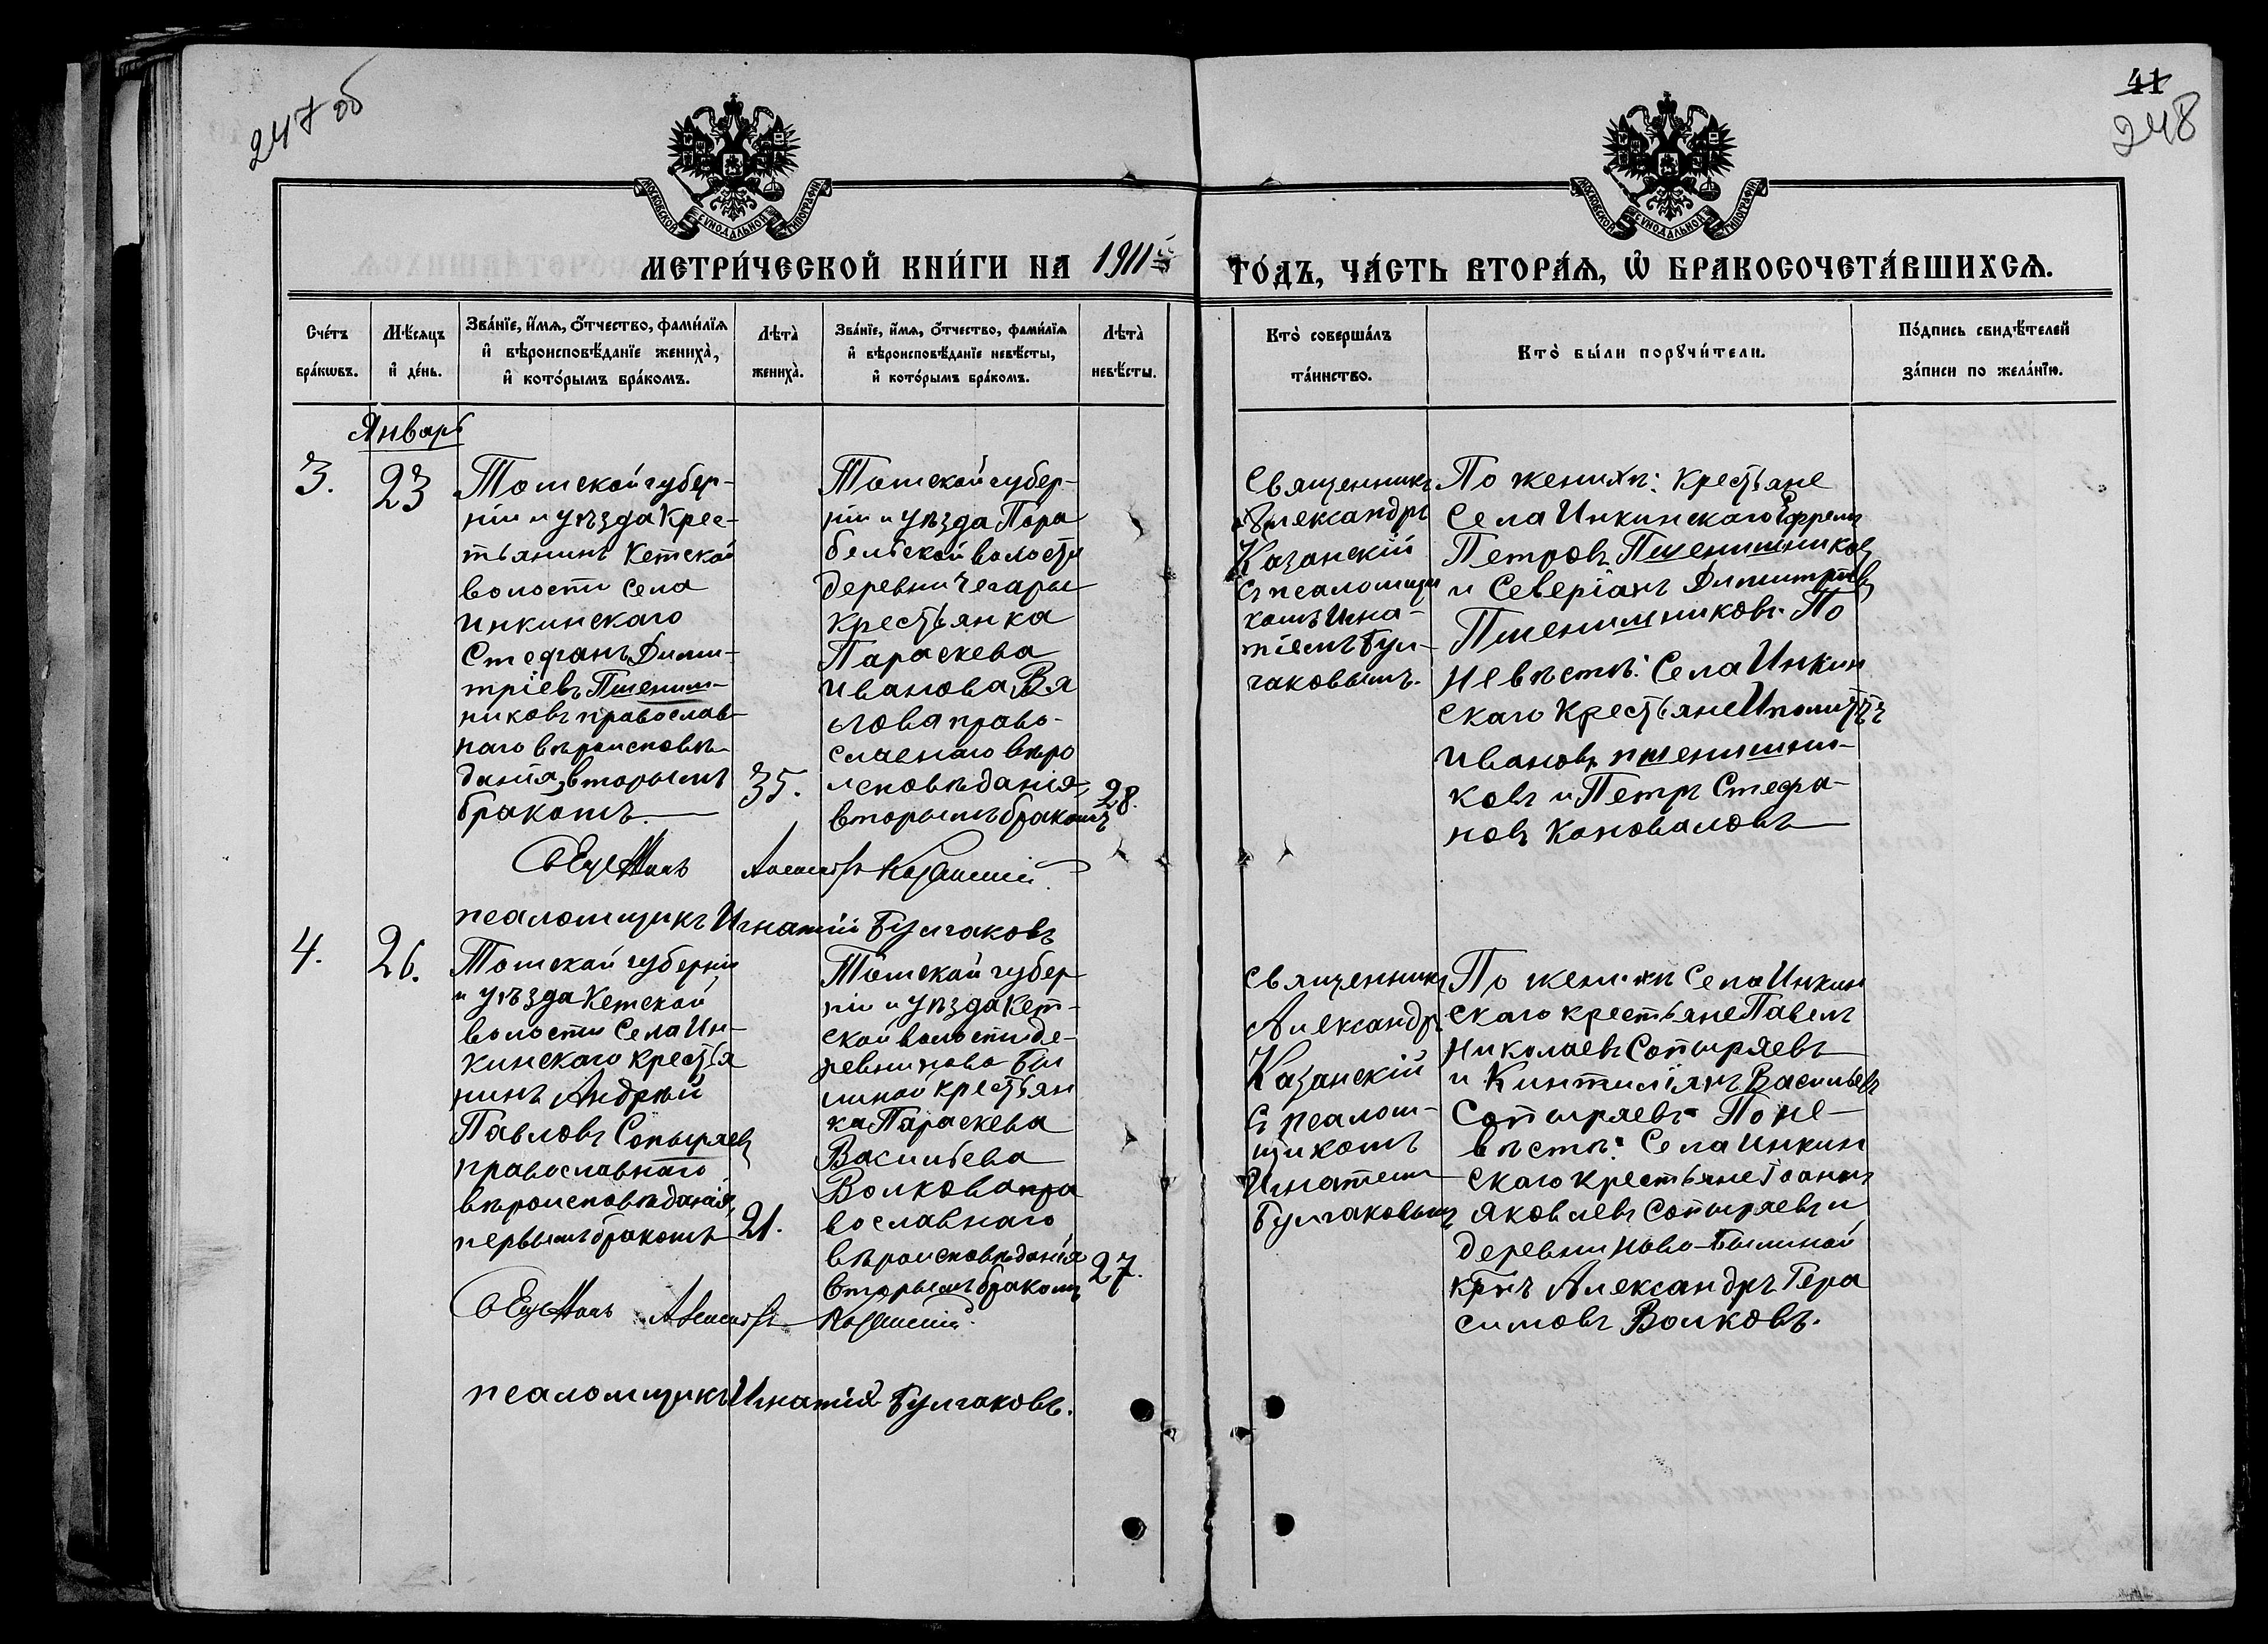 247 об
41
248
МОСКОВСКОЙ СѴНОДАЛЬНОЙ ТИПОГРАФІИ
МОСКОВСКОЙ СѴНОДАЛЬНОЙ ТИПОГРАФІИ
МЕТРИ́ЧЕСКОЙ КНИ́ГИ НА 1911й
ГО́ДЪ, ЧА́СТЬ ВТОРА́Ѧ, Ѽ БРАКОСОЧЕТА́ВШИХСѦ.
Сче́тъ
бра́кѡвъ.
Мѣ́сѧцъ
и҆ де́нь.
Зва́нїе, и҆́мѧ, ѻ҆́тчество, фами́лїѧ
и҆ вѣроисповѣ́данїе жениха̀,
и҆ кото́рымъ бра́комъ.
Лѣта̀
жениха̀.
Зва́нїе, и҆́мѧ, ѻ҆́тчество, фами́лїѧ
и҆ вѣроисповѣ́данїе невѣ́сты,
и҆ кото́рымъ бра́комъ.
Лѣта̀
невѣ́сты.
Кто̀ соверша́лъ
та́инство.
Кто̀ бы́ли порꙋчи́тели.
По́дпись свидѣ́телей
за́писи по жела́нїю.
Январь
3.
23
Томской губер-
ніи и уѣзда Крес-
тьянинъ Кетской
волости Села
Инкинскаго
Стефанъ Дими-
тріевъ Пшениш-
никовъ православ-
наго вѣроисповѣ-
данія, вторымъ
бракомъ.
35.
Томской губер-
ніи и уѣзда Пара
бельской волости
деревни Чегары
крестьянка
Параскева
Иванова Вя
лова право-
славнаго вѣро
исповѣданія,
вторымъ бракомъ
28.
Священникъ
Александръ
Казанскій
съ псаломщи
комъ Игна-
тіемъ Бул-
гаковымъ.
По женихѣ: крестьяне
Села Инкинскаго Ефремъ
Петровъ Пшенишниковъ
и Северіанъ Димитріевъ
Пшенишниковъ. По
невѣстѣ: Села Инкин
скаго крестьяне Иполитъ
Ивановъ Пшенишни-
ковъ и Петръ Стефа-
новъ Коноваловъ
Казанскій
псаломщикъ Игнатій Булгаковъ
4.
26.
Томской губерніи
и уѣзда Кетской
волости Села Ин-
кинскаго крестья
нинъ Андрей
Павловъ Сопыряевъ
православнаго
вѣроисповѣданія,
первымъ бракомъ
21.
Томской губер
ніи и уѣзда Кет-
ской волости де-
ревни Ново Бы
линой крестьян
ка Параскева
Васильева
Волкова пра
вославнаго
вѣроисповѣданія
вторымъ бракомъ
27.
Священникъ
Александръ
Казанскій
съ псалом-
щикомъ
Игнатіем
Булгаковымъ
По женихѣ Села Инкин
скаго крестьяне Павелъ
Николаевъ Сопыряевъ
и Кинтиліянъ Васильевъ
Сопыряевъ. По не-
вѣстѣ: Села Инкин
скаго крестьяне Іоаннъ
Яковлевъ Сопыряевъ и
деревни Ново-Былиной
крнъ Александръ Гера
симовъ Волковъ.
Казанскій
псаломщикъ Игнатій Булгаковъ.